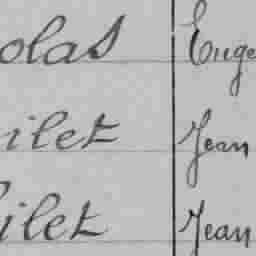 olas Euge
ilet Jean
ilet Jean